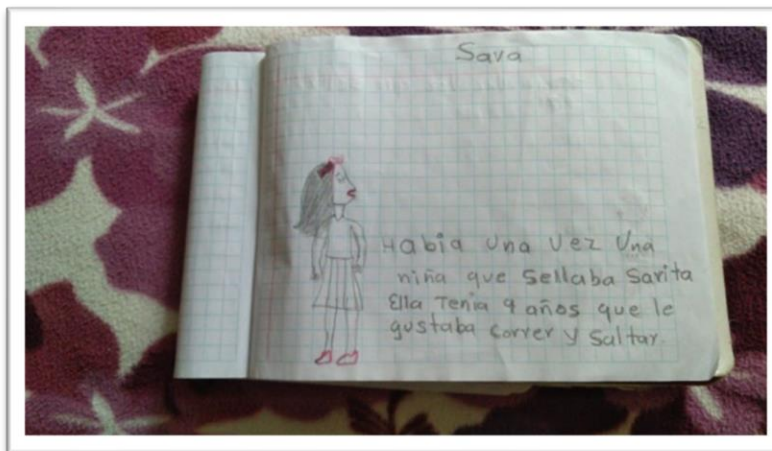 Sara
Habia una vez una
niña que sellaba Sarita
Ella Tenia 9 años que le
gustaba correr y saltar.